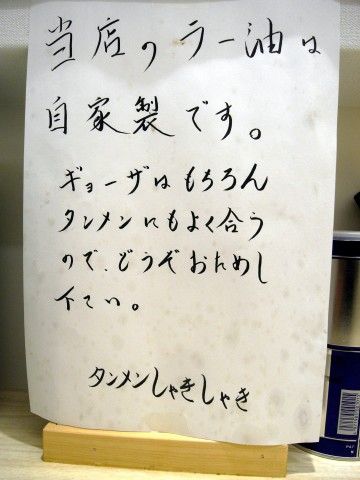 当店のラー油は
自家製です。
ギョーザはもちろん
タンメンにもよく合う
ので、どうぞおためし
下さい。
タンメンしゃきしゃき